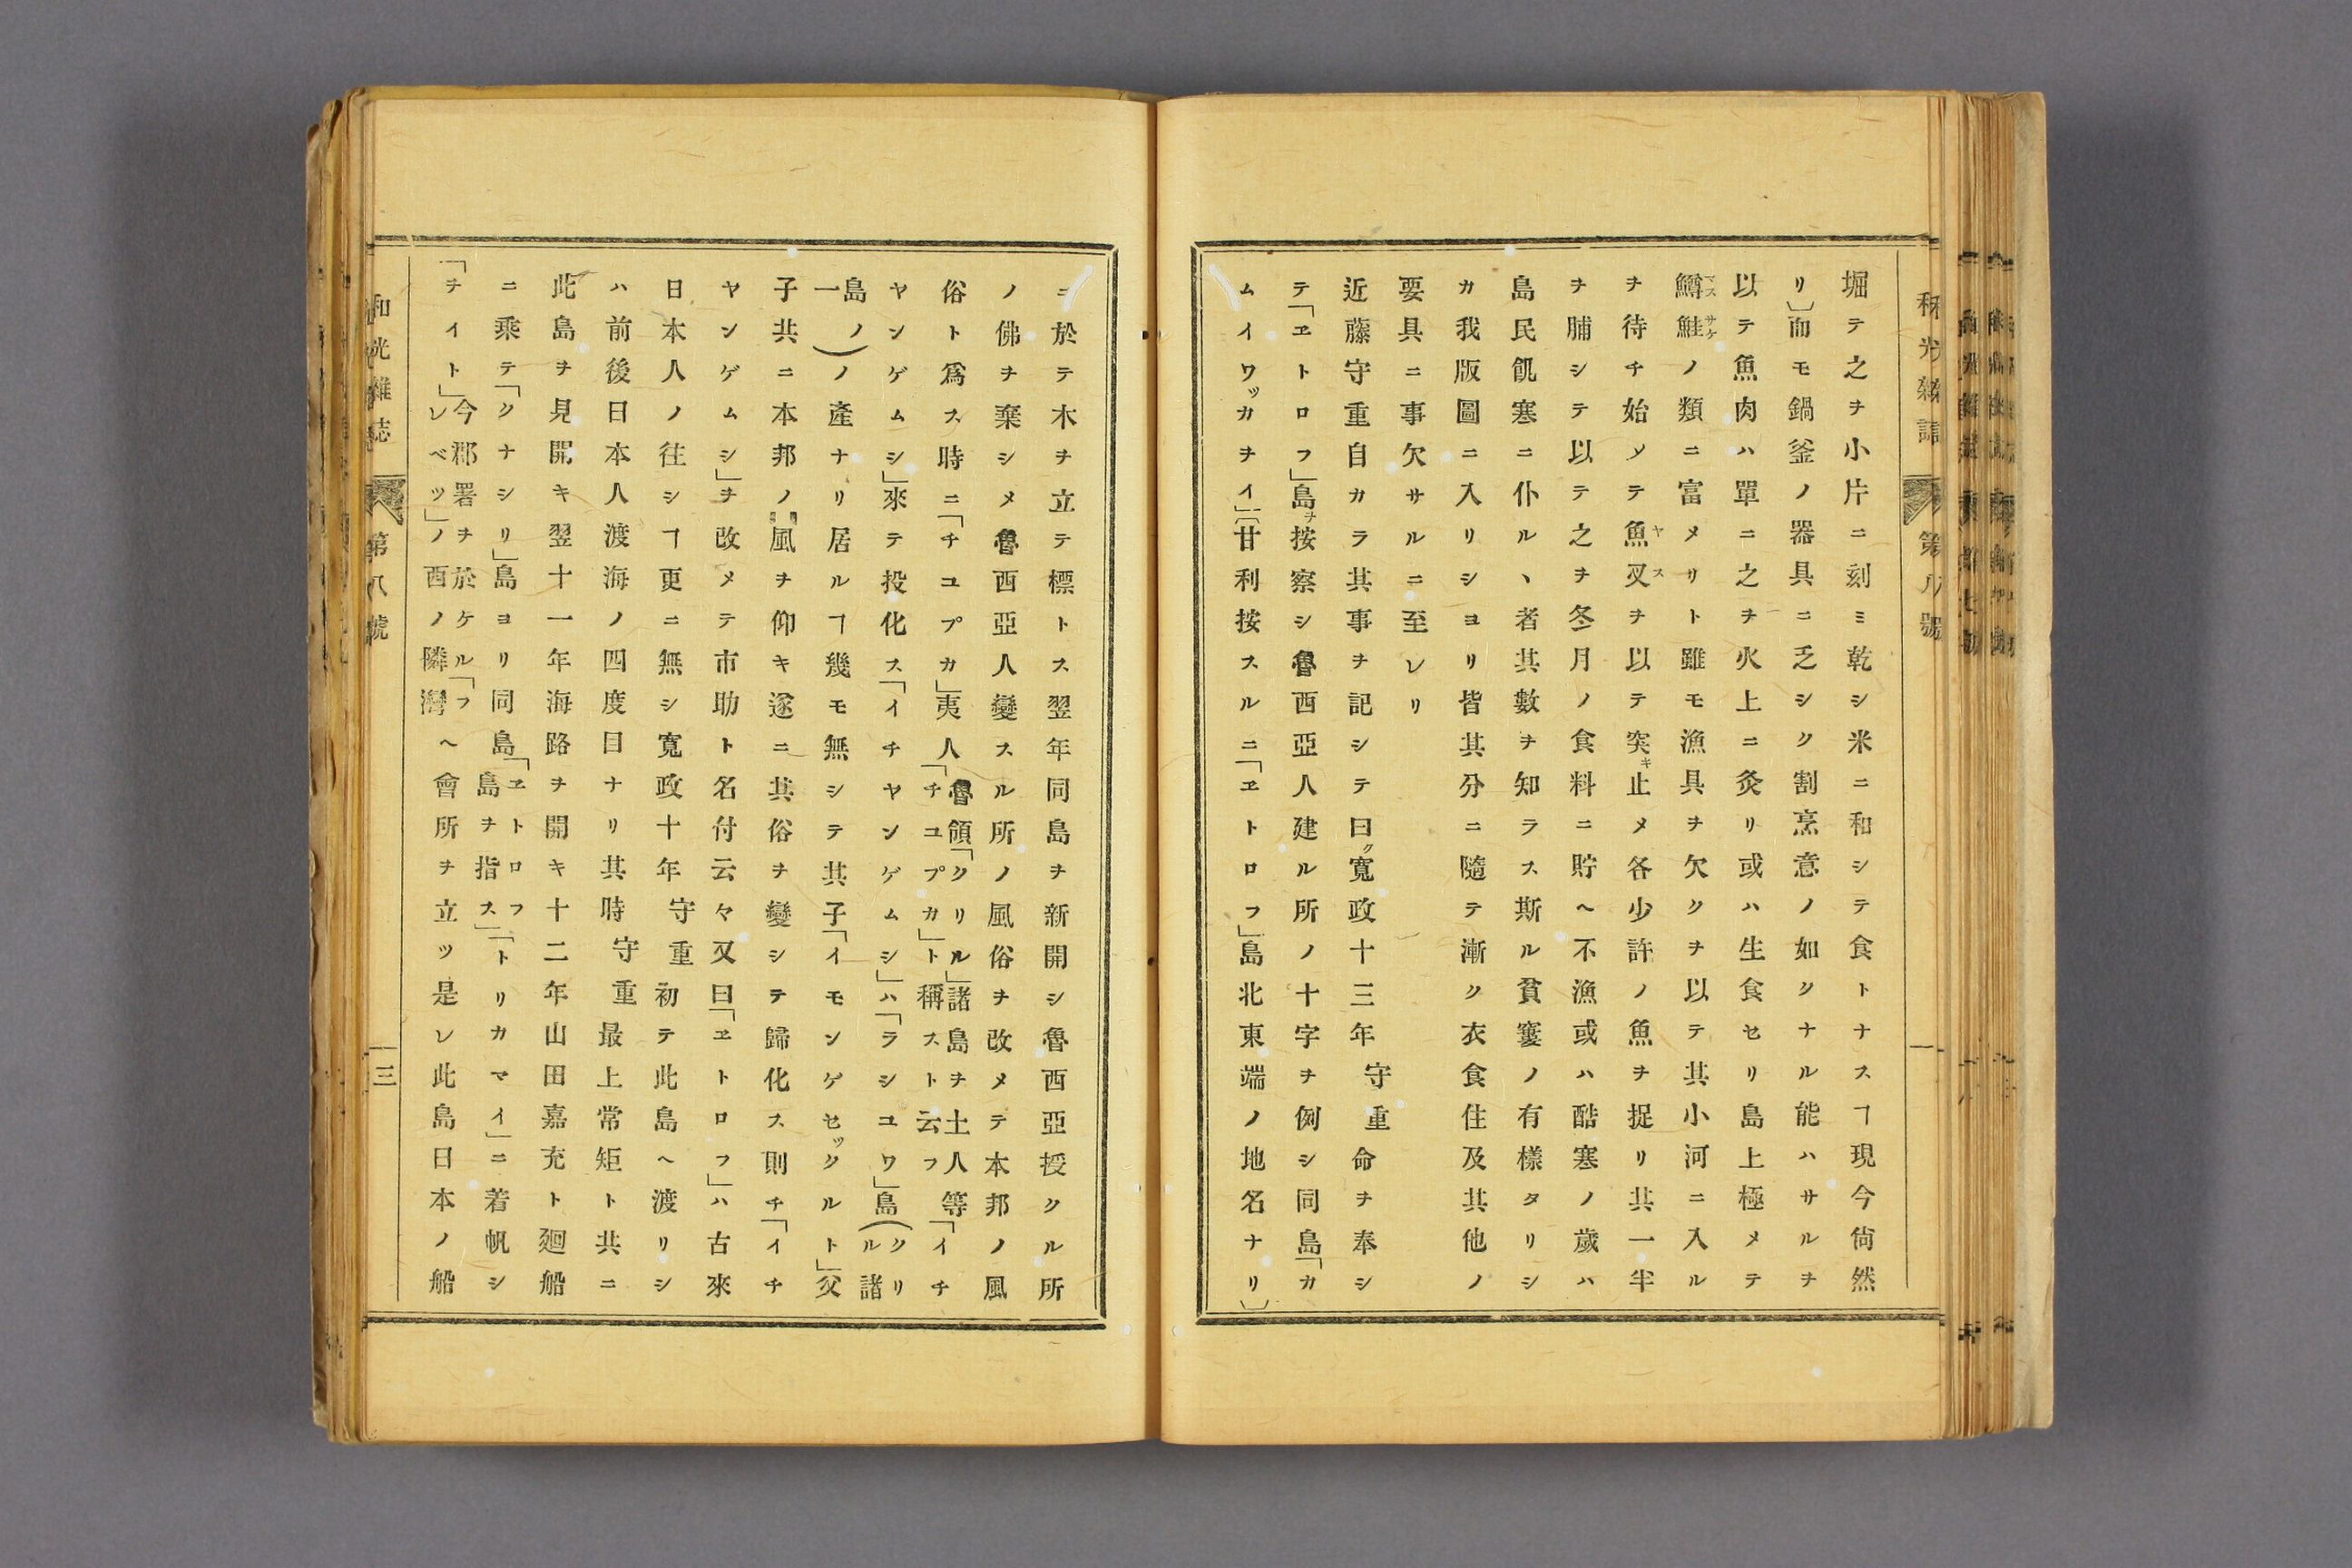 和光雜誌 第八號 一
堀テ之ヲ小片ニ刻ミ乾シ米ニ和シテ食トナスヿ現今尙然
リ〕而モ鍋釜ノ器具ニ乏シク割烹意ノ如クナル能ハサルヲ
以テ魚肉ハ單ニ之ヲ火上ニ灸リ或ハ生食セリ島上極メテ
鱒マス鮭サケノ類ニ富メリト雖モ漁具ヲ欠クヲ以テ其小河ニ入ル
ヲ待チ始メテ魚ヤ叉スヲ以テ突キ止メ各少許ノ魚ヲ捉リ其一半
ヲ脯シテ以テ之ヲ冬月ノ食料ニ貯ヘ不漁或ハ酷寒ノ歲ハ
島民飢寒ニ仆ルヽ者其數ヲ知ラス斯ル貧窶ノ有樣タリシ
カ我版圖ニ入リシヨリ皆其分ニ隨テ漸ク衣食住及其他ノ
要具ニ事欠サルニ至レリ
近藤守重自カラ其事ヲ記シテ曰ク寬政十三年守重命ヲ奉シ
テ「ヱトロフ」島ヲ按察シ魯西亞人建ル所ノ十字ヲ例シ同島「カ
ムイワッカヲイ」〔甘利按スルニ「ヱトロフ」島北東端ノ地名ナリ〕
ニ於テ木ヲ立テ標トス翌年同島ヲ新開シ魯西亞授クル所
ノ佛ヲ棄シメ魯西亞人變スル所ノ風俗ヲ改メテ本邦ノ風
俗ト爲ス時ニ「チユプカ」夷人「魯領「クリル」諸島ヲ土人等「チユプカ」ト稱スト云フ「イチ
ヤンゲムシ」來テ投化ス「イチヤンゲムシ」ハ「ラシユワ」島(クリル諸
島ノ一)ノ產ナリ居ルヿ幾モ無シテ其子「イモンゲセックルト」父
子共ニ本邦ノ風ヲ仰キ遂ニ其俗ヲ變シテ歸化ス則チ「イチ
ヤンゲムシ」ヲ改メテ市助ト名付云々又曰「ヱトロフ」ハ古來
日本人ノ往シヿ更ニ無シ寬政十年守重初テ此島ヘ渡リシ
ハ前後日本人渡海ノ四度目ナリ其時守重最上常矩ト共ニ
此島ヲ見開キ翌十一年海路ヲ開キ十二年山田嘉充ト廻船
ニ乘テ「クナシリ」島ヨリ同島「ヱトロフ島ヲ指ス」「トリカマイ」ニ着帆シ
「チイト」今郡署ヲ於ケル「フレベツ」ノ西ノ隣灣ヘ會所ヲ立ツ是レ此島日本ノ船
和光雜誌 第八號 三